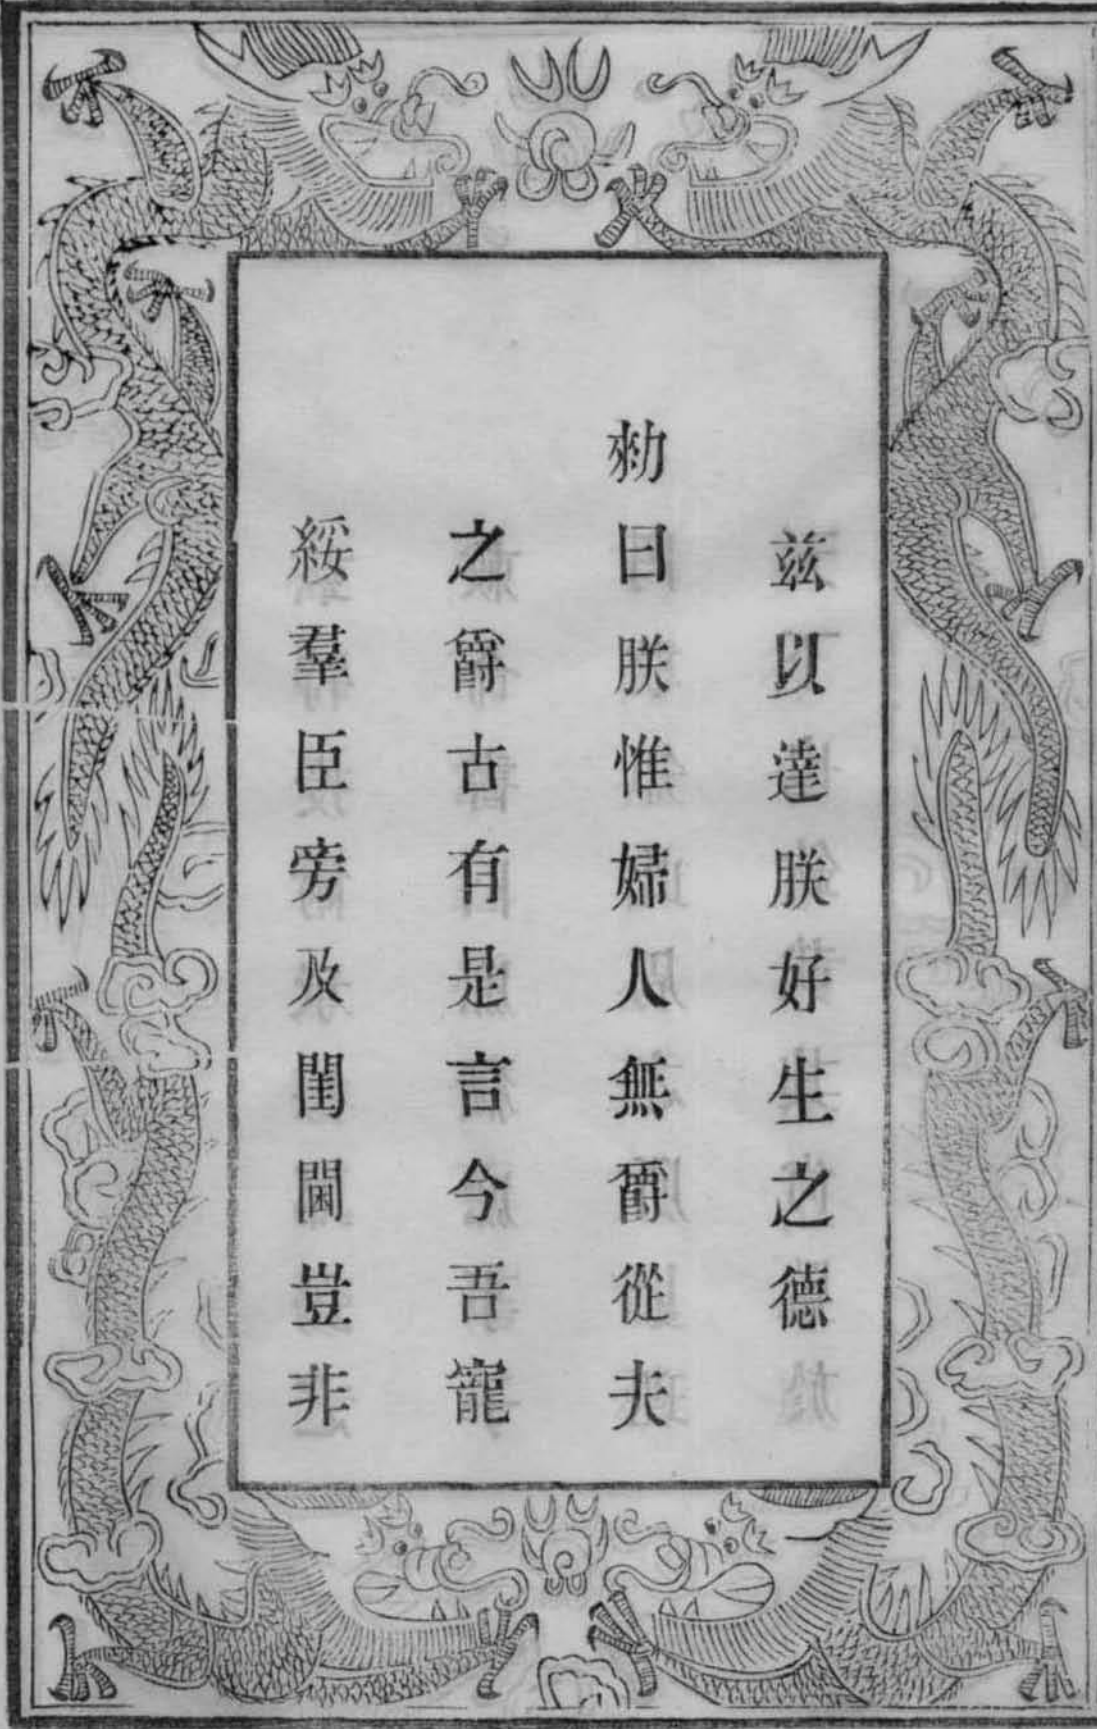 茲以達朕好生之德
勑曰朕惟婦人無爵從夫
之爵古有是言今吾寵
綏羣臣旁及閨閫豈非